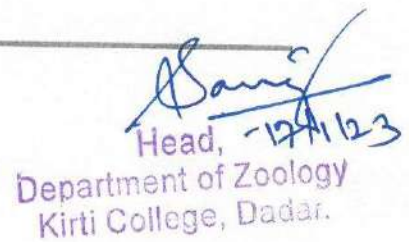 Head,
Department of Zoology
Kirti College, Dadar.